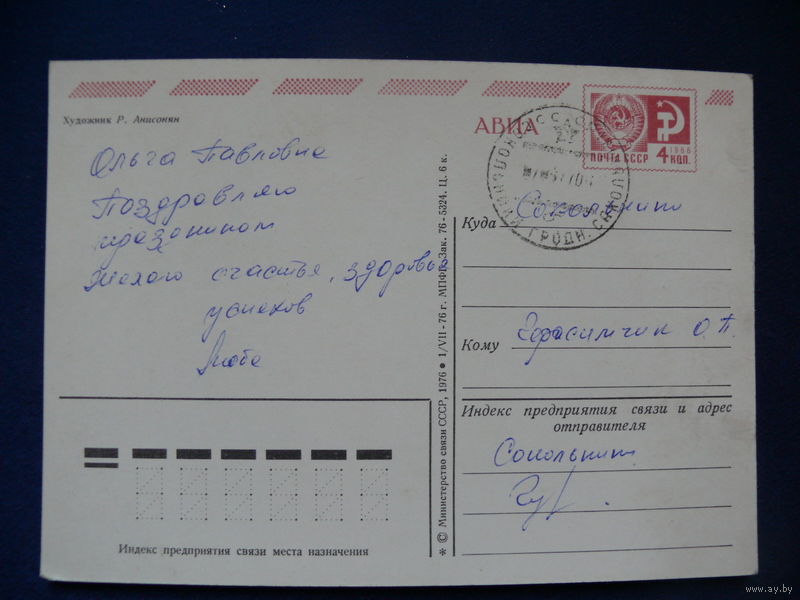 Художник Р. Анисонян
АВИА
ПОЧТА СССР
1966
4 КОП.
Ольга Павловна
Поздравляю
праздником
Желаю счастья, здоровья
успехов
Люба
Куда
Сокольники
Кому Герасимчик О.П.
Индекс предприятия связи и адрес
отправителя
Сокольники
Индекс предприятия связи места назначения
* © Министерство связи СССР, 1976 ● 1/VII-76 г. МПФГ. Зак. 76-5324. Ц. 6 к.
www.ay.by